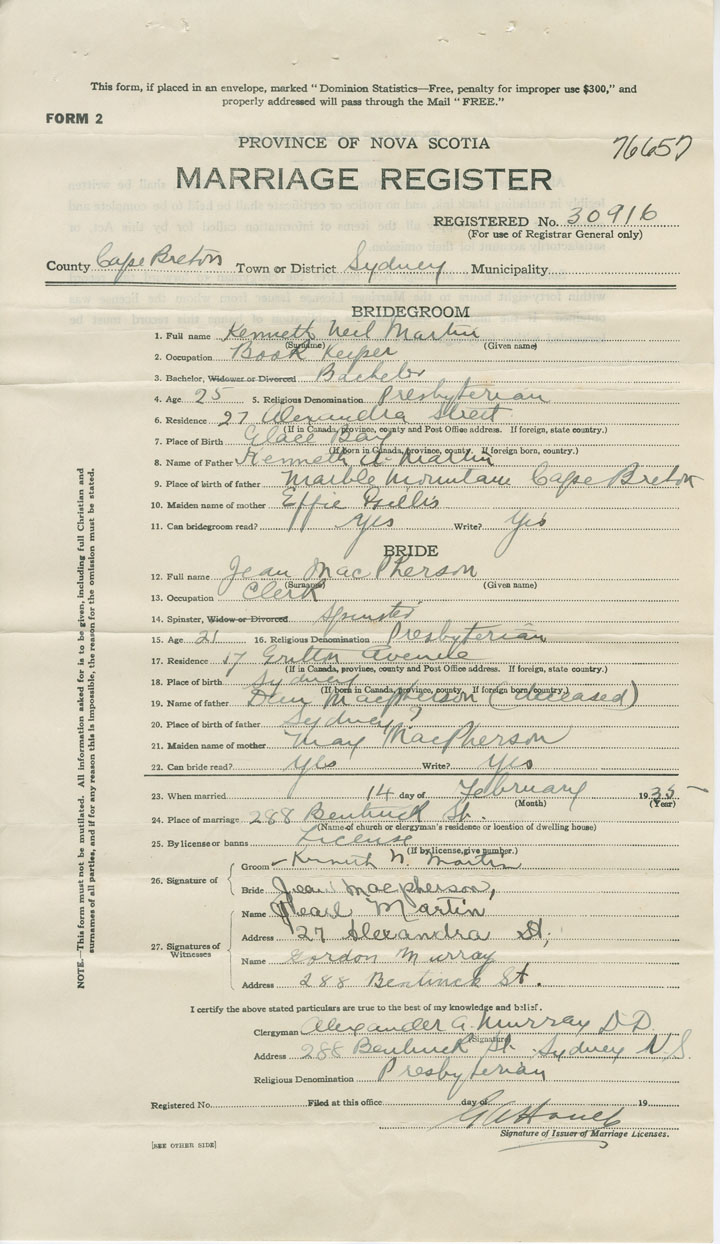 This form, if placed in an envelope, marked "Dominion Statistics—Free, penalty for improper use $300," and
properly addressed will pass through the Mail "FREE."
FORM 2
PROVINCE OF NOVA SCOTIA
76657
MARRIAGE REGISTER
REGISTERED No. 30916
(For use of Registrar General only)
County Cape Breton Town or District Sydney Municipality
BRIDEGROOM
1. Full name Kenneth Neil Martin
(Surname) (Given name)
2. Occupation Book Keeper
3. Bachelor, Widower or Divorced Bachelor
4. Age 25 5. Religious Denomination Presbyterian
6. Residence 27 Alexandra Street
(If in Canada, province, county and Post Office address. If foreign, state country.)
7. Place of Birth Glace Bay
(If born in Canada, province, county. If foreign born, country.)
8. Name of Father Kenneth A. Martin
9. Place of birth of father Marble Mountain Cape Breton
10. Maiden name of mother Effie Gillis
11. Can bridegroom read? Yes Write? Yes
BRIDE
12. Full name Jean MacPherson
(Surname) (Given name)
13. Occupation Clerk
14. Spinster, Widow or Divorced Spinster
15. Age 21 16. Religious Denomination Presbyterian
17. Residence 17 Avenue
(If in Canada, province, county and Post Office address. If foreign, state country.)
18. Place of birth Sydney
(If born in Canada, province, county. If foreign born, country.)
19. Name of father Macpherson (deceased)
20. Place of birth of father Sydney?
21. Maiden name of mother May MacPherson
22. Can bride read? Yes Write? Yes
23. When married 14 day of February 1935
(Month) (Year)
24. Place of marriage 288 Bentinck St.
(Name of church or clergyman's residence or location of dwelling house)
25. By license or banns License
(If by license, give number.)
26. Signature of
Groom Kenneth N. Martin
Bride Jean Macpherson,
27. Signatures of Witnesses
Name Pearl Martin
Address 27 Alexandra St,
Name Gordon Murray
Address 288 Bentinck St.
I certify the above stated particulars are to the best of my knowledge and belief.
Clergyman Alexander A. Murray D.D.
(Signature)
Address 288 Bentinck St. Sydney N.S.
Religious Denomination Presbyterian
Registered No. Filed at this office day of 19
Signature of Issuer of Marriage Licenses.
[SEE OTHER SIDE]
NOTE.—This form must not be mutilated. All information asked for is to be given, including full Christian and
surnames of all parties, and if for any reason this is impossible, the reason for the omission must be stated.